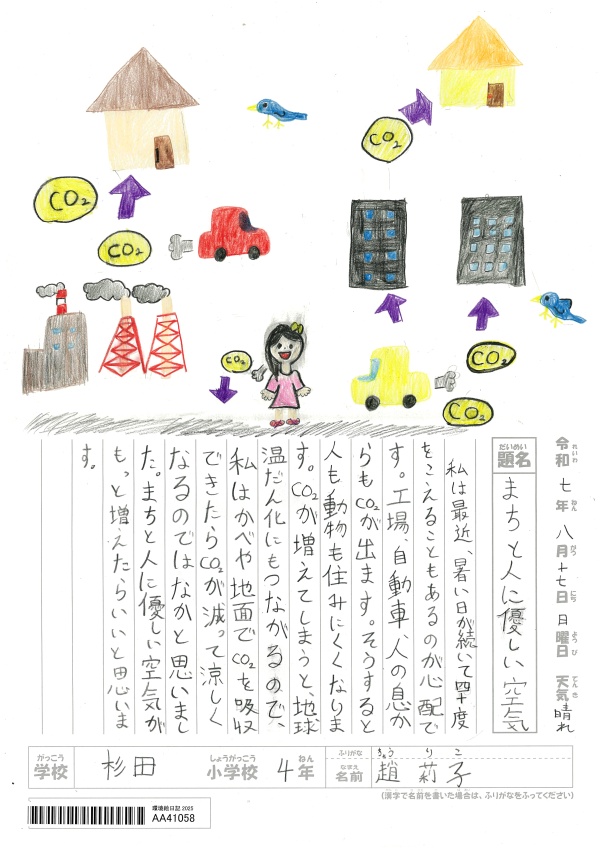 CO₂
CO₂
CO₂
CO₂
CO₂
CO₂
令和七年八月十七日日曜日 天気晴れ
れいわ ねん がつ にち ようび てんき
だいめい
題名 まちと人に優しい空気
私は最近、暑い日が続いて四十度
をこえることもあるのが心配で
す。工場、自動車人の息か
らもCO₂が出ます。そうすると
人も動物も住みにくくなりま
す。CO₂が増えてしまうと、地球
温だん化にもつながるので、
私はかべや地面でCO₂を吸収
できたらCO₂が減って涼しく
なるのではなかと思いまし
た。まちと人に優しい空気が
もっと増えたらいいと思いま
す。
がっこう しょうがっこう ねん ふりがな
学校 杉田 小学校 4年
なまえ
名前 趙 莉子
りこ
(漢字で名前を書いた場合は、ふりがなをふってください)
環境絵日記 2025
AA41058